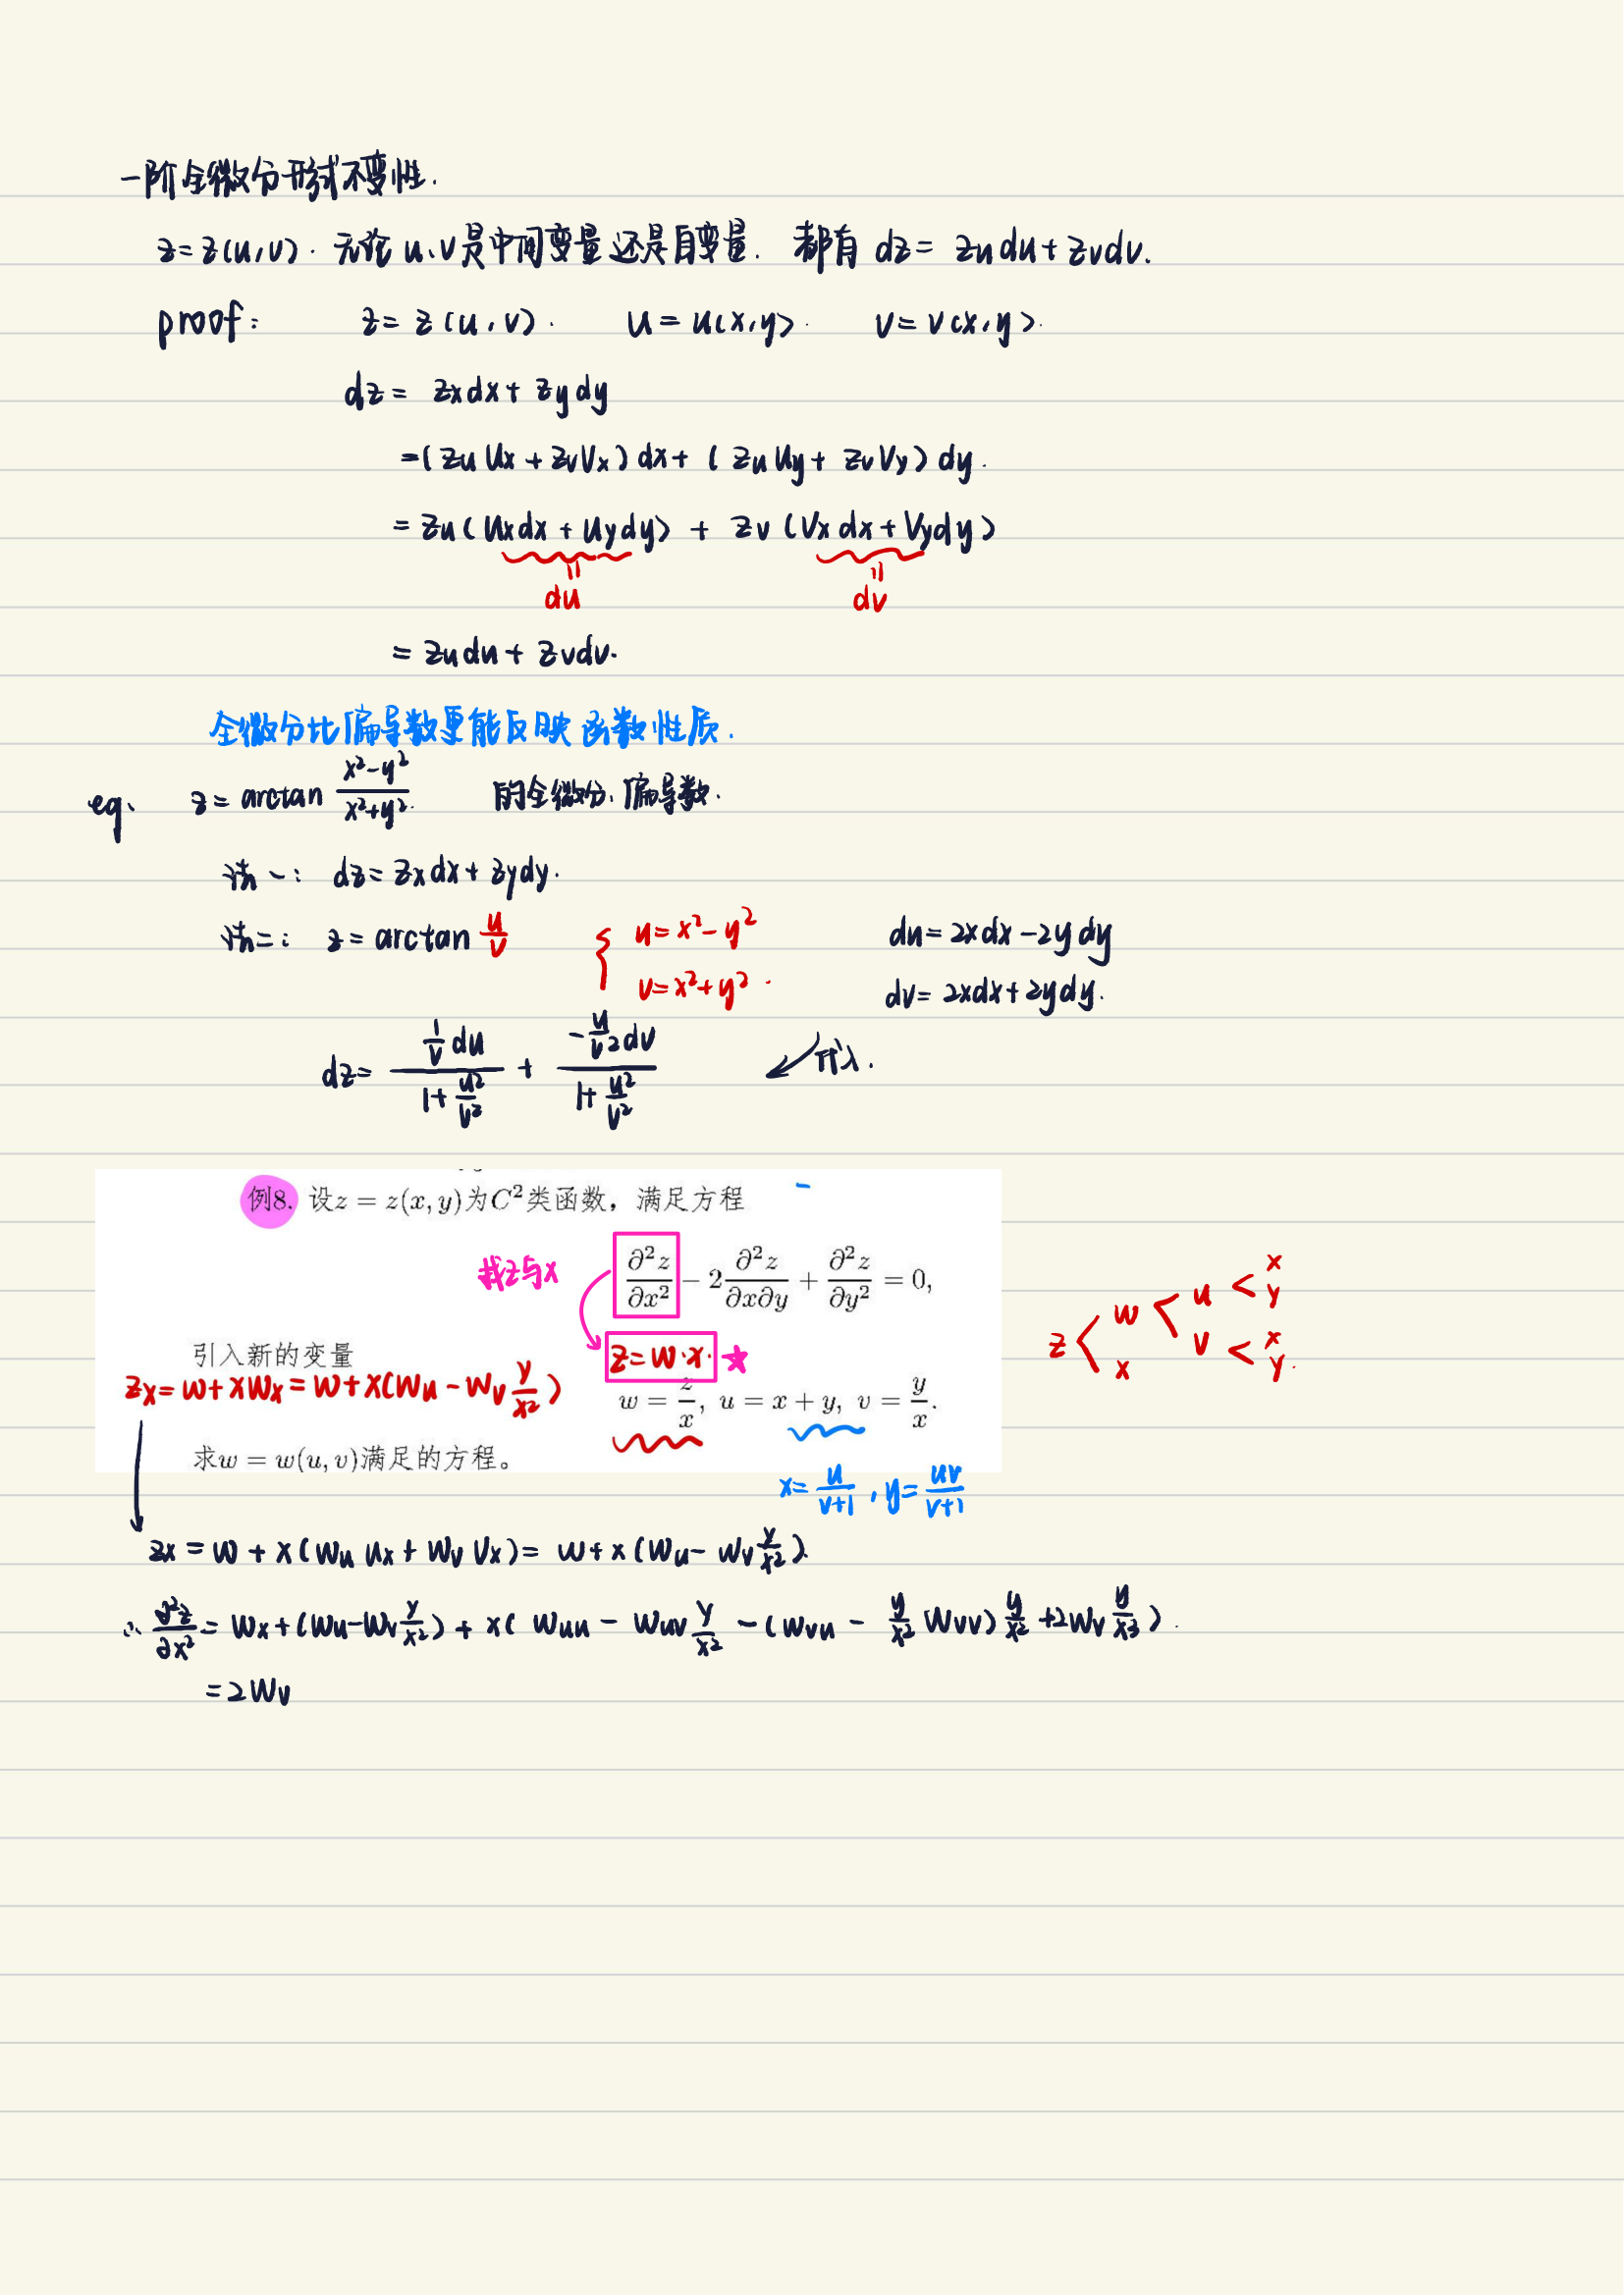 一阶全微分形式不变性.
z=z(u,v). 无论 u、v是中间变量还是自变量. 都有 dz= zudu+zvdv.
proof: z=z(u,v). u=u(x,y). v=v(x,y).
dz= zxdx+zydy
=(zuux+zvvx)dx+(zuuy+zvvy)dy.
=zu(uxdx+uydy)+zv(vxdx+vydy)
du dv
=zudu+zvdv.
全微分比偏导数更能反映函数性质.
eg. z=arctan (x²-y²)/(x²+y²) 的全微分、偏导数.
法一: dz=zxdx+zydy.
法二: z=arctan u/v { u=x²-y² du=2xdx-2ydy
v=x²+y². dv=2xdx+2ydy.
dz= (1/v du)/(1+u²/v²) + (-u/v² dv)/(1+u²/v²) 代入.
例8. 设z = z(x, y)为C²类函数，满足方程
找z与x ∂²z/∂x² − 2 ∂²z/∂x∂y + ∂²z/∂y² = 0,
z < w < u < x y
x v < x y.
引入新的变量 z=w·x. ★
zx=w+xwx=w+x(wu-wv y/x²)
w = z/x, u = x + y, v = y/x.
求w = w(u, v)满足的方程。
x=u/(v+1), y=uv/(v+1)
zx=w+x(wuux+wvvx)=w+x(wu-wv y/x²).
∴ ∂²z/∂x²=wx+(wu-wv y/x²)+x(wuu-wuv y/x²-(wvu-y/x² wvv) y/x²+2wv y/x³).
=2wv